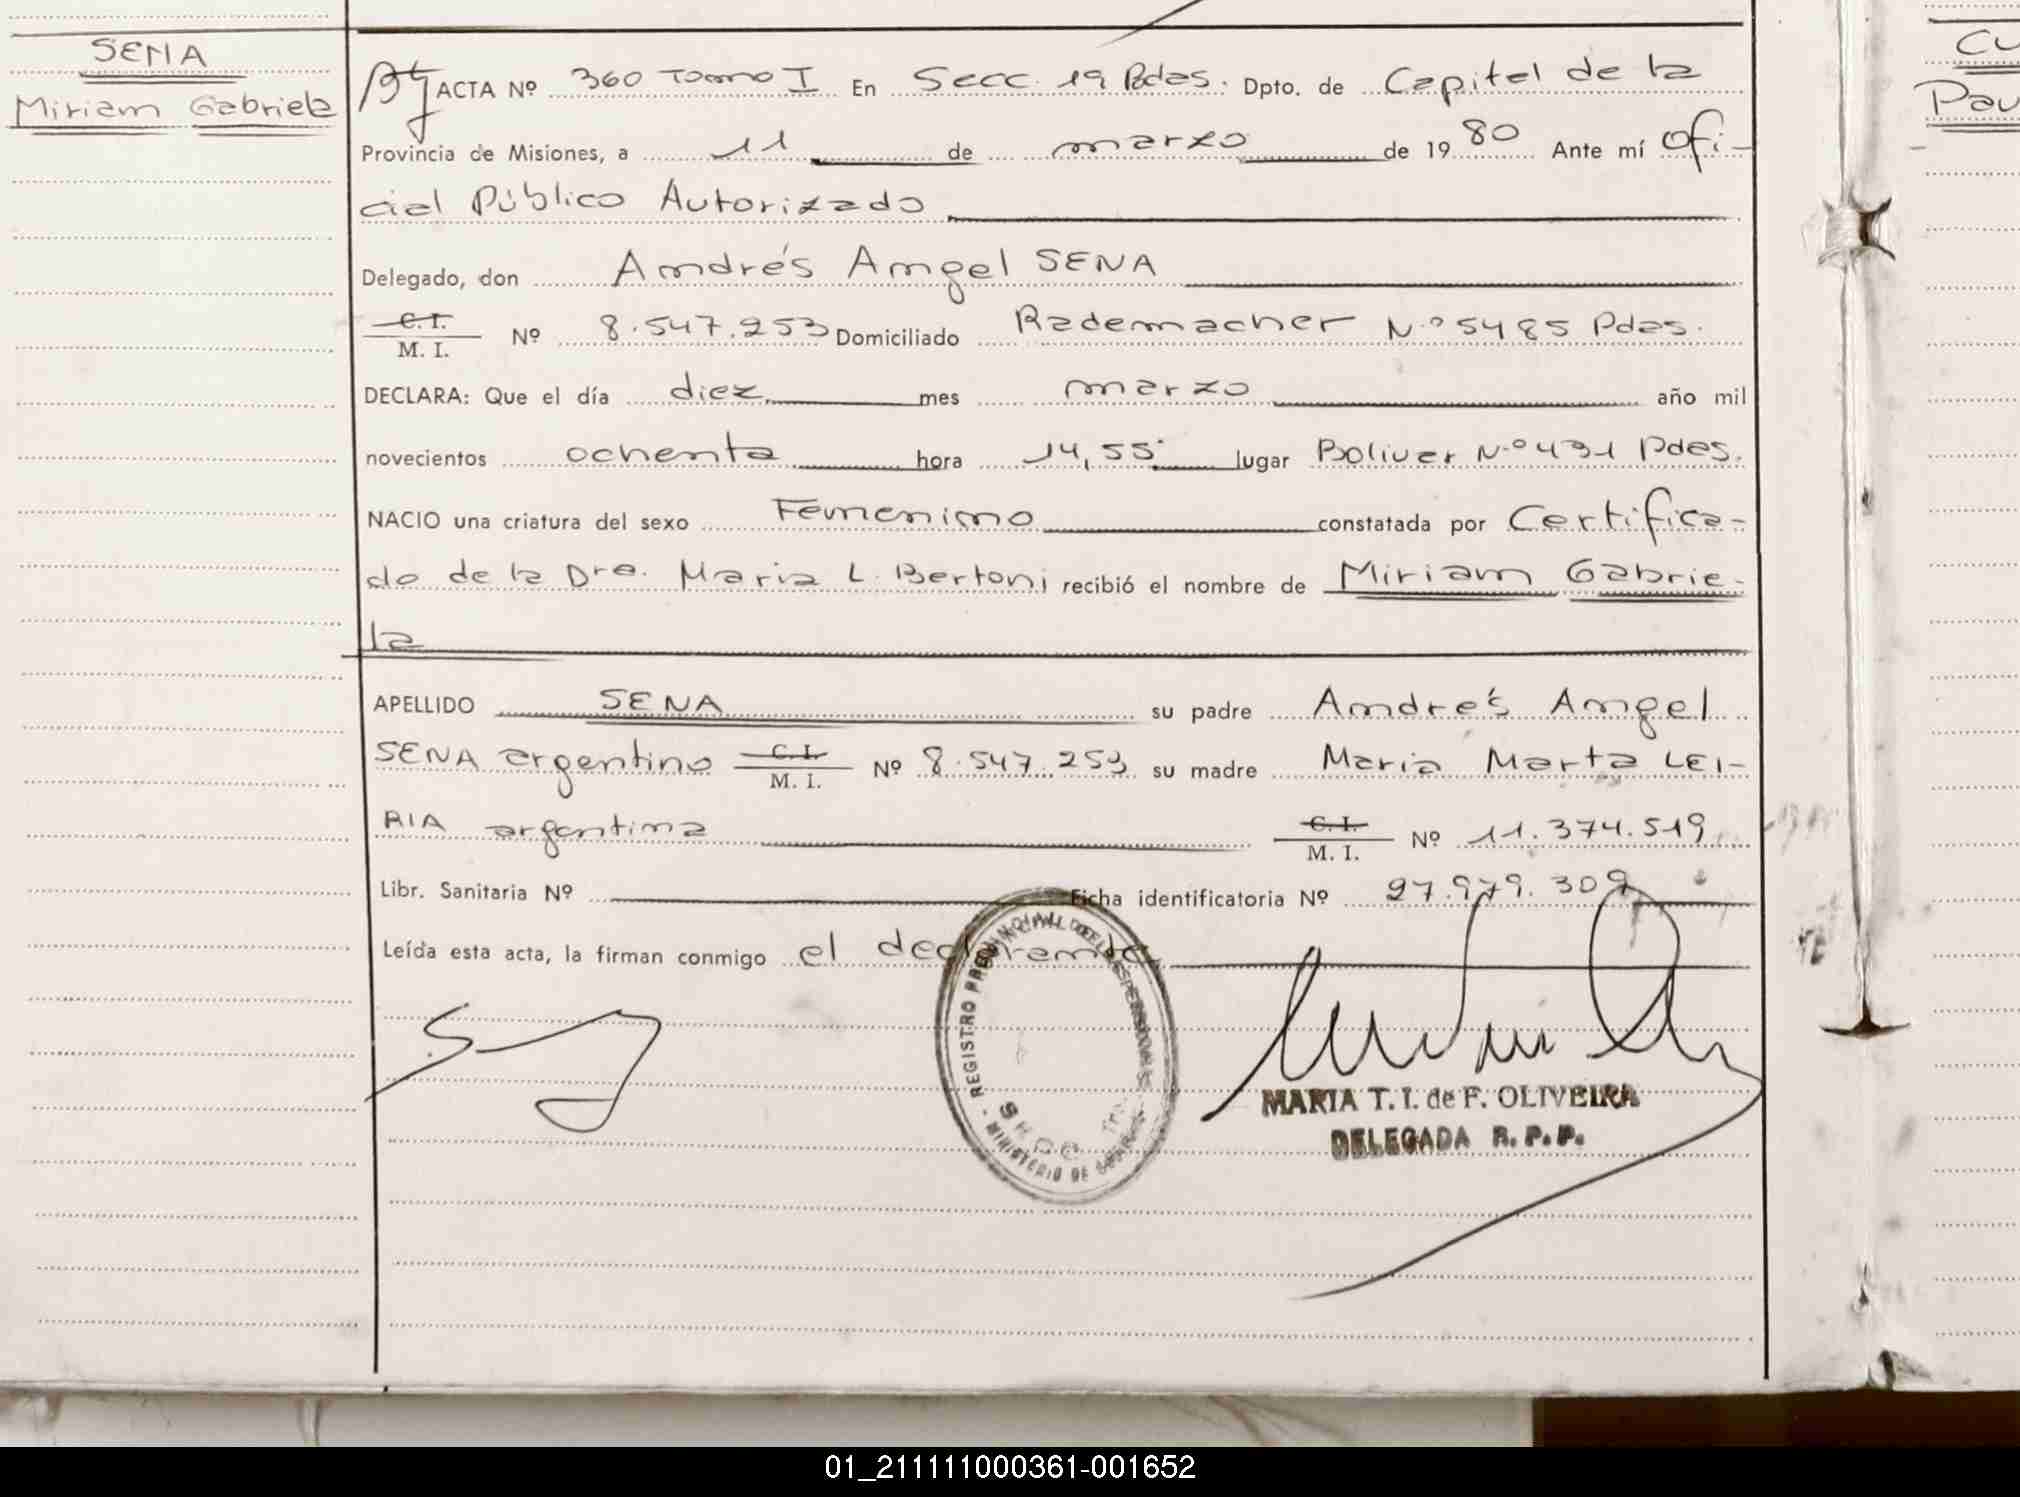 SENA
Miriam Gabriela
ACTA Nº 360 Tomo I En Secc. 1ª Pdas. Dpto. de Capital de la
Provincia de Misiones, a 11 de marzo de 1980 Ante mí Ofi-
cial Público Autorizado
Delegado, don Andrés Angel SENA
C. I. M. I. Nº 8.547.253 Domiciliado Rademacher N.º 5485 Pdas.
DECLARA: Que el día diez mes marzo año mil
novecientos ochenta hora 14,55 lugar Bolivar N.º 431 Pdas.
NACIO una criatura del sexo Femenino constatada por Certifica-
do de la Dra. Maria L. Bertoni recibió el nombre de Miriam Gabrie-
la
APELLIDO SENA su padre Andrés Angel
SENA argentino C. I. M. I. Nº 8.547.253 su madre Maria Marta LEI-
RIA argentina C. I. M. I. Nº 11.374.519
Libr. Sanitaria Nº Ficha identificatoria Nº 27.979.309
Leída esta acta, la firman conmigo el declarante
REGISTRO PROVINCIAL DE LAS PERSONAS
MINISTERIO DE
MARIA T. I. de F. OLIVEIRA
DELEGADA R. P. P.
CU
Pau
01_211111000361-001652